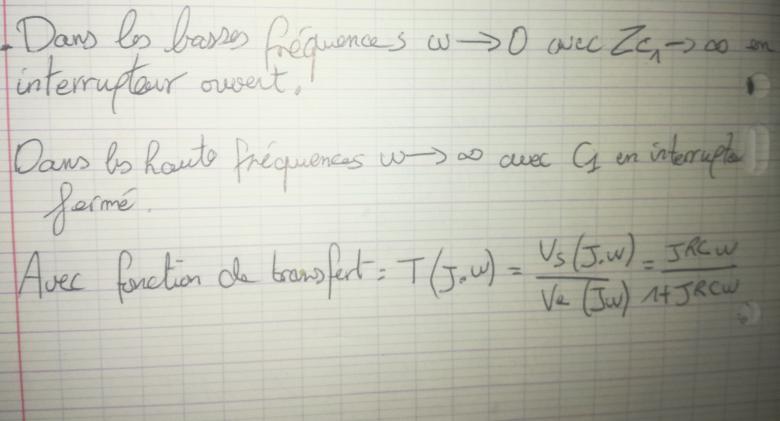 . Dans les basses fréquences w → 0 avec Zc1 → ∞ en
interrupteur ouvert.
Dans les haute fréquences w → ∞ avec C1 en interrupte
fermé.
Avec fonction de transfert = T(J.w) = Vs(J.w) / Ve(Jw) = JRCw / 1+JRCw